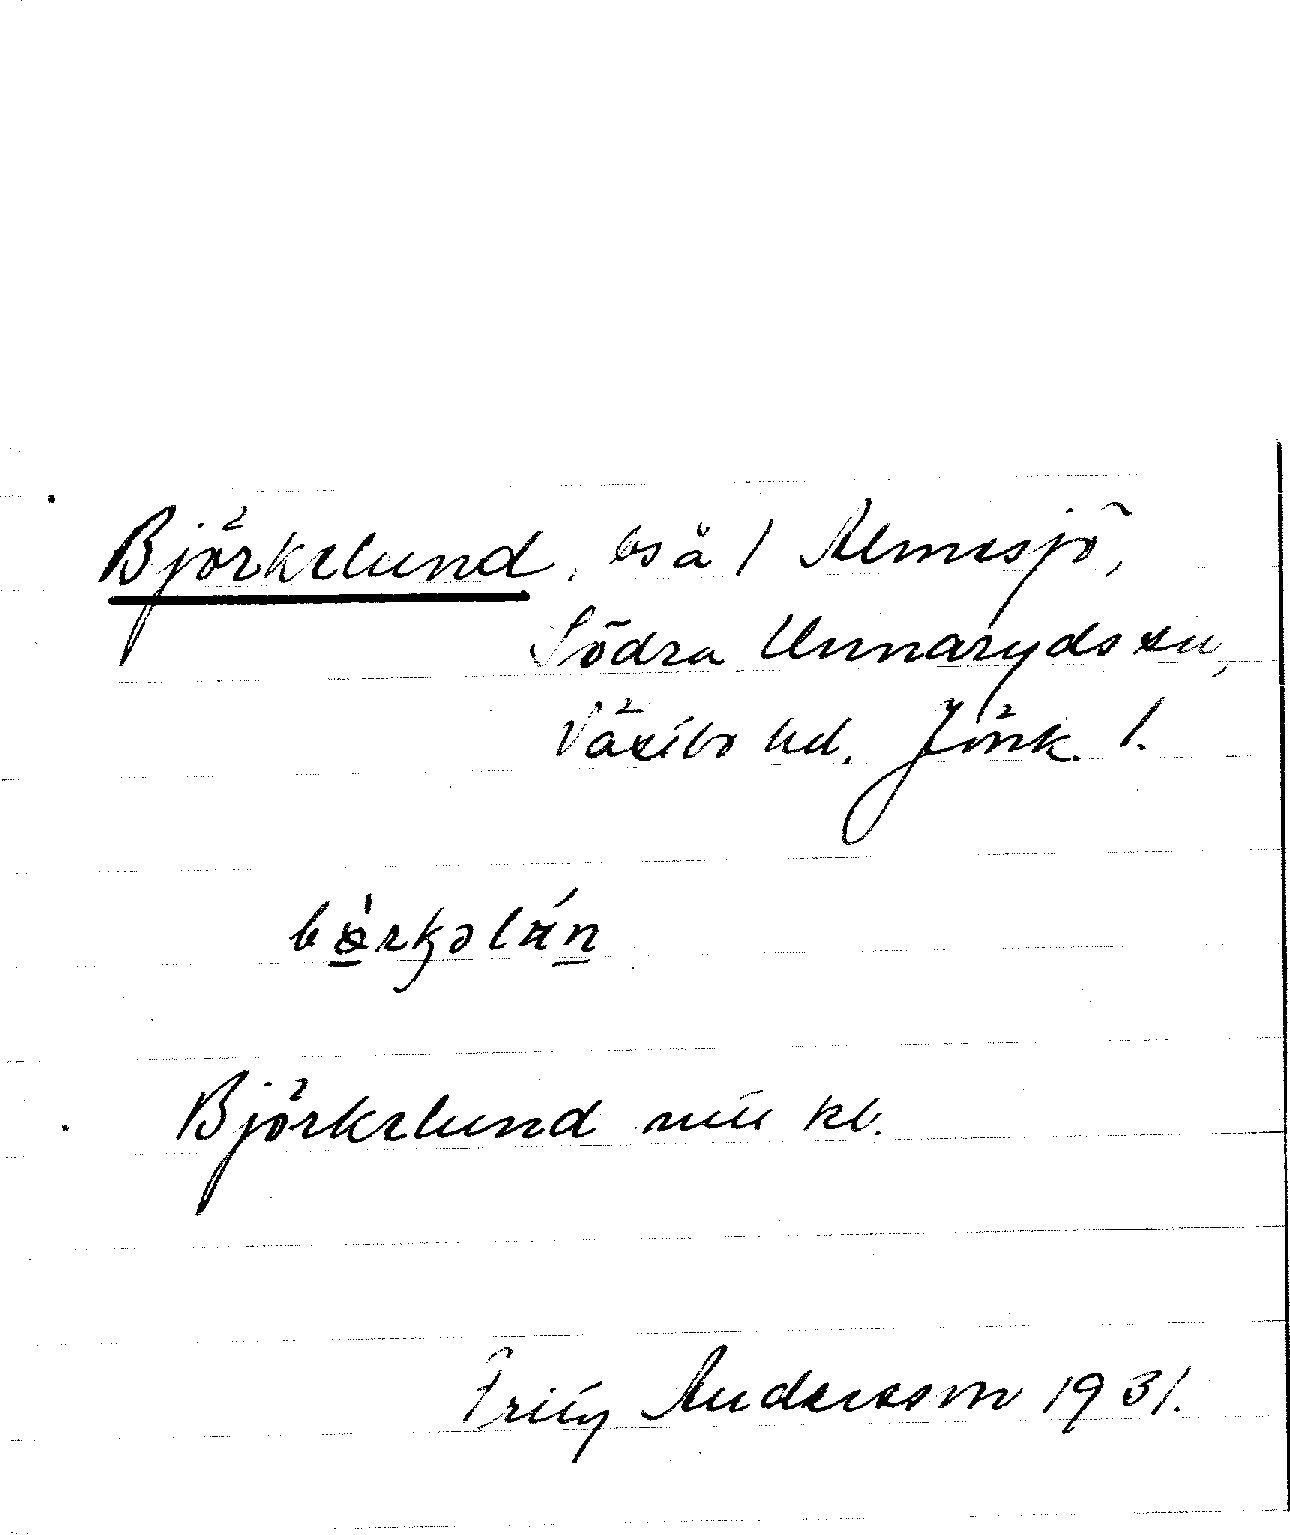 Björkelund, bs å 1 Almesjö,
Södra Unnaryds sn,
Västbo hd. Jönk. l.
Björkelund
Fritz Andersson 1931.